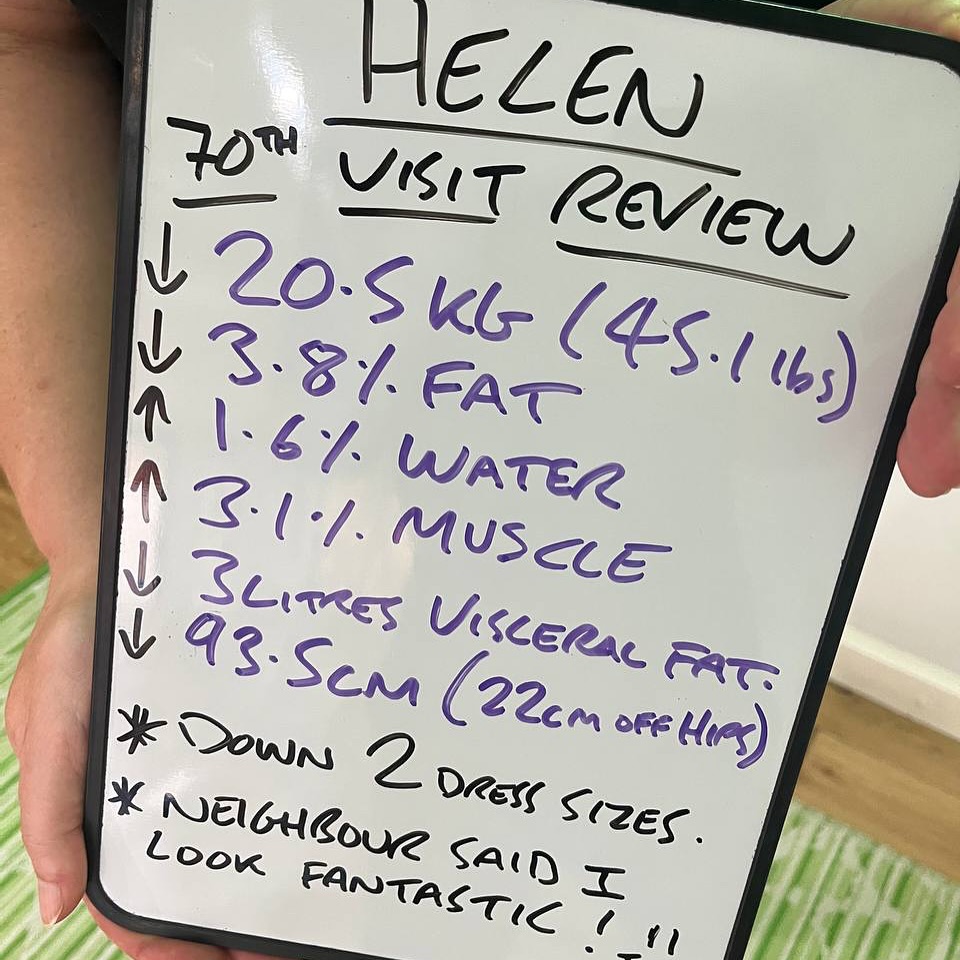 HELEN
70TH VISIT REVIEW
↓ 20.5KG (45.1 lbs)
↓ 3.8% FAT
↑ 1.6% WATER
↑ 3.1% MUSCLE
↓ 3LITRES VISCERAL FAT.
↓ 93.5CM (22CM OFF HIPS)
* DOWN 2 DRESS SIZES.
* NEIGHBOUR SAID I
LOOK FANTASTIC! !!